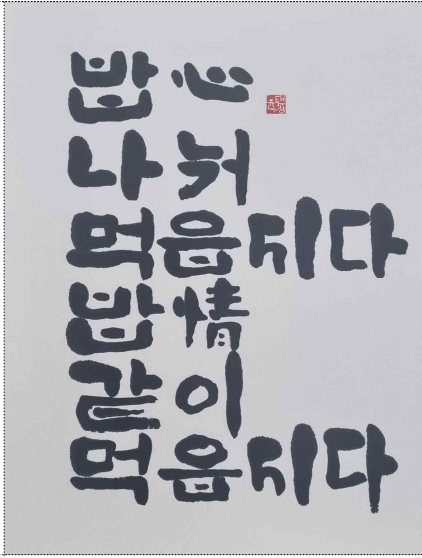 밥心
나눠
먹읍시다
밥情
같이
먹읍시다